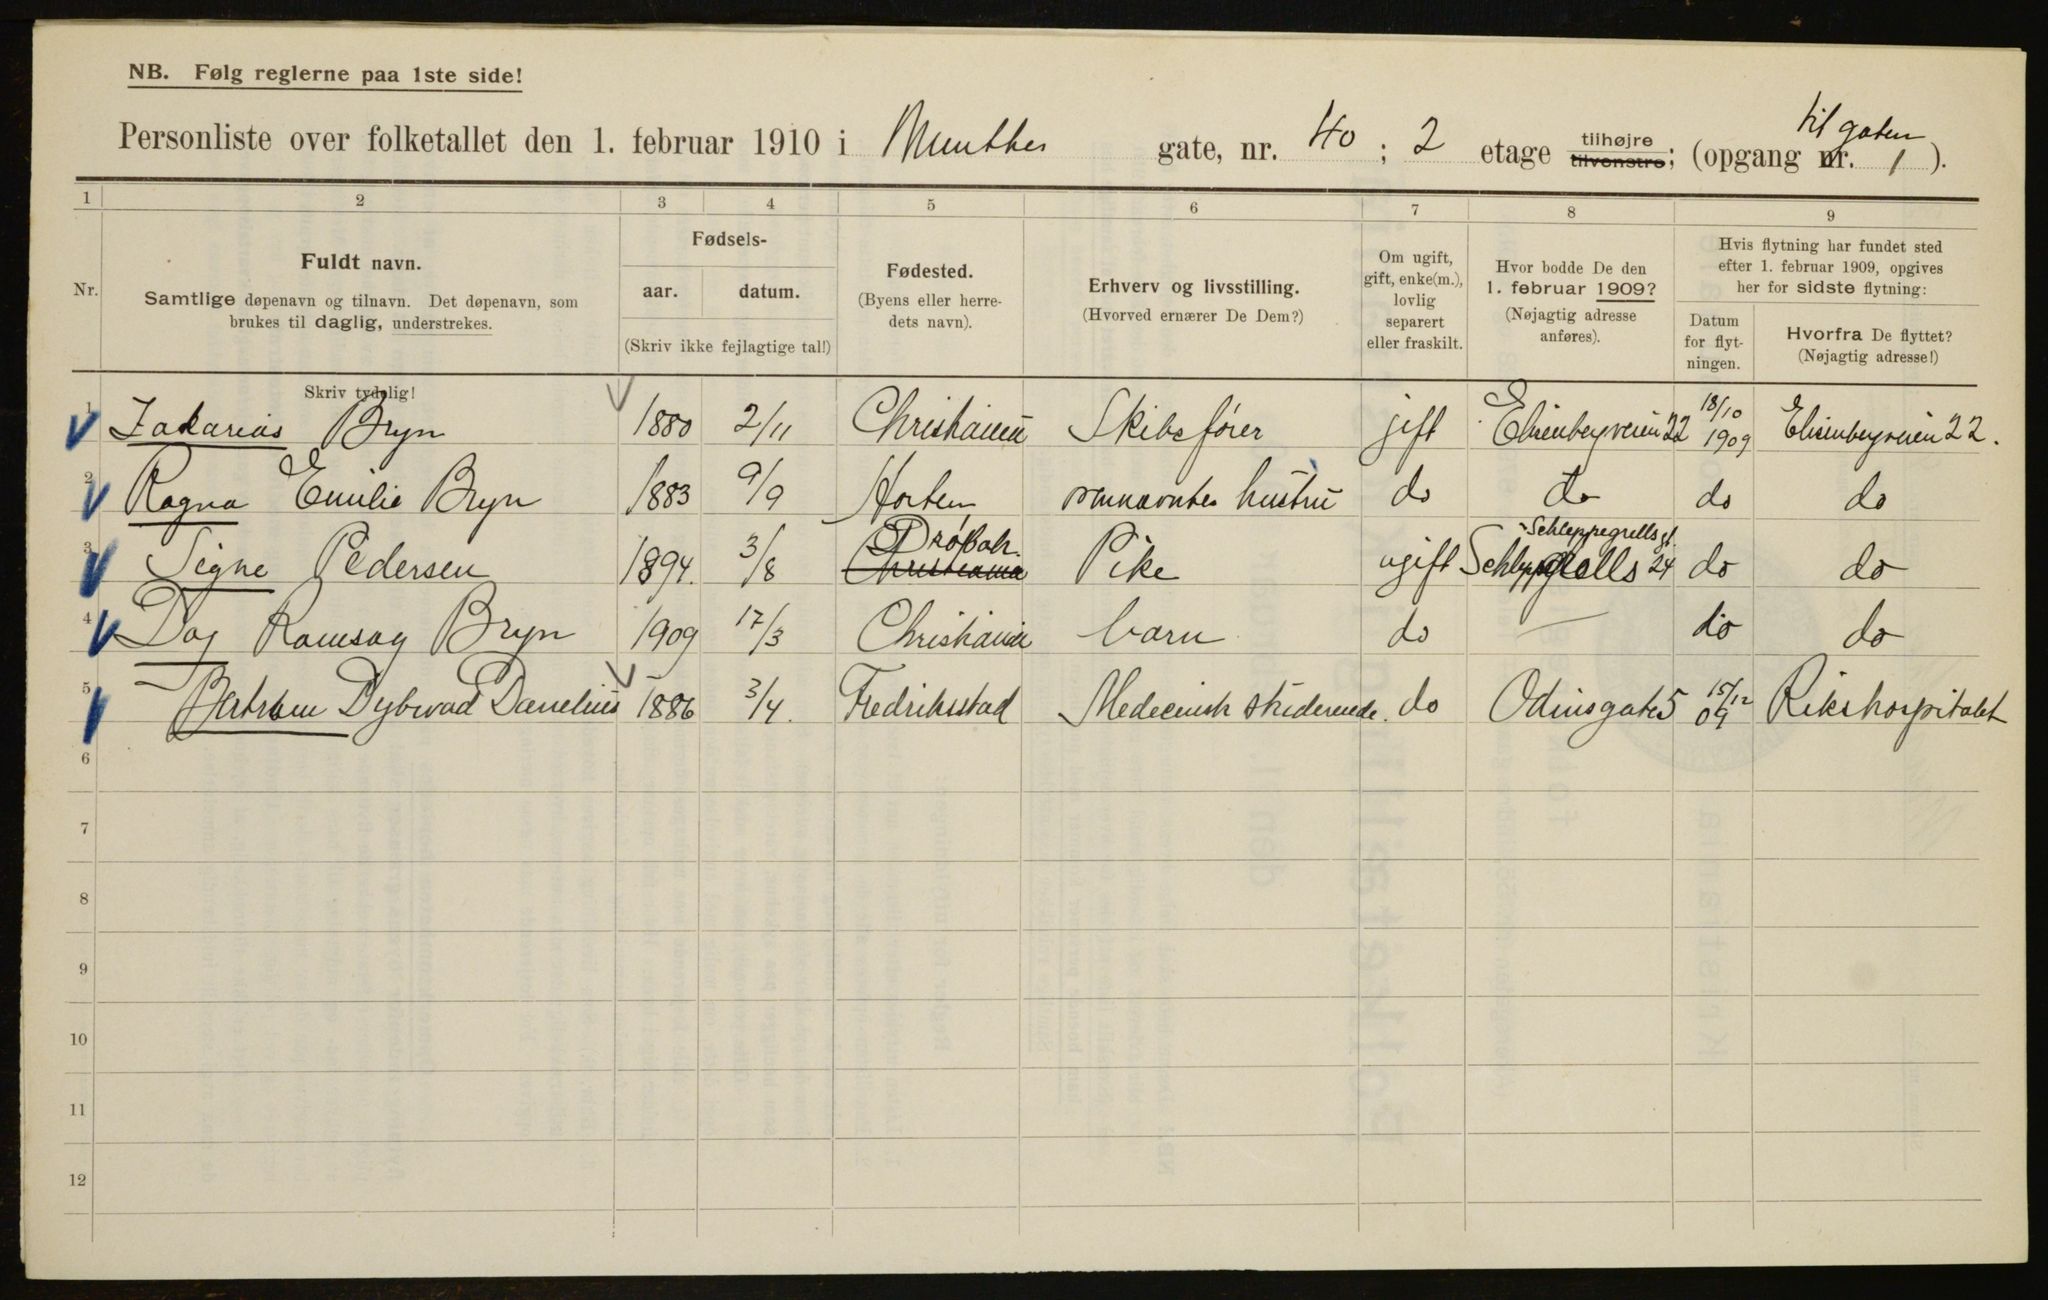 NB. Følg reglerne paa 1ste side!
Personliste over folketallet den 1. februar 1910 i Munthes gate, nr. 40 ; 2 etage tilhøjre tilvenstre; (opgang nr. 1 ). til gaten
1 2 3 4 5 6 7 8 9
Nr.
Fuldt navn.
Samtlige døpenavn og tilnavn. Det døpenavn, som
brukes til daglig, understrekes.
Fødsels-
aar. datum.
(Skriv ikke fejlagtige tal!)
Fødested.
(Byens eller herre-
dets navn).
Erhverv og livsstilling.
(Hvorved ernærer De Dem?)
Om ugift,
gift, enke(m.),
lovlig
separert
eller fraskilt.
Hvor bodde De den
1. februar 1909?
(Nøjagtig adresse
anføres).
Hvis flytning har fundet sted
efter 1. februar 1909, opgives
her for sidste flytning:
Datum
for flyt-
ningen.
Hvorfra De flyttet?
(Nøjagtig adresse!)
Skriv tydelig!
1 Zakarias Bryn 1880 2/11 Christiania Skibsfører gift Elisenbergveien 22 18/10 1909 Elisenbergveien 22.
2 Ragna Emilie Bryn 1883 9/9 Horten hustru do do do do
3 Signe Pedersen 1894. 3/8 Drøbak. Christiania Pike ugift Schleppegrells 24 Schleppegrells gt. do do
4 Dag Ramsay Bryn 1909 17/3 Christiania barn do — do do
5 Bertram Dybwad Danelius 1886 3/4. Fredriksstad Medecinsk studerende. do Odinsgate 5 15/12 09 Rikshospitalet
6
7
8
9
10
11
12